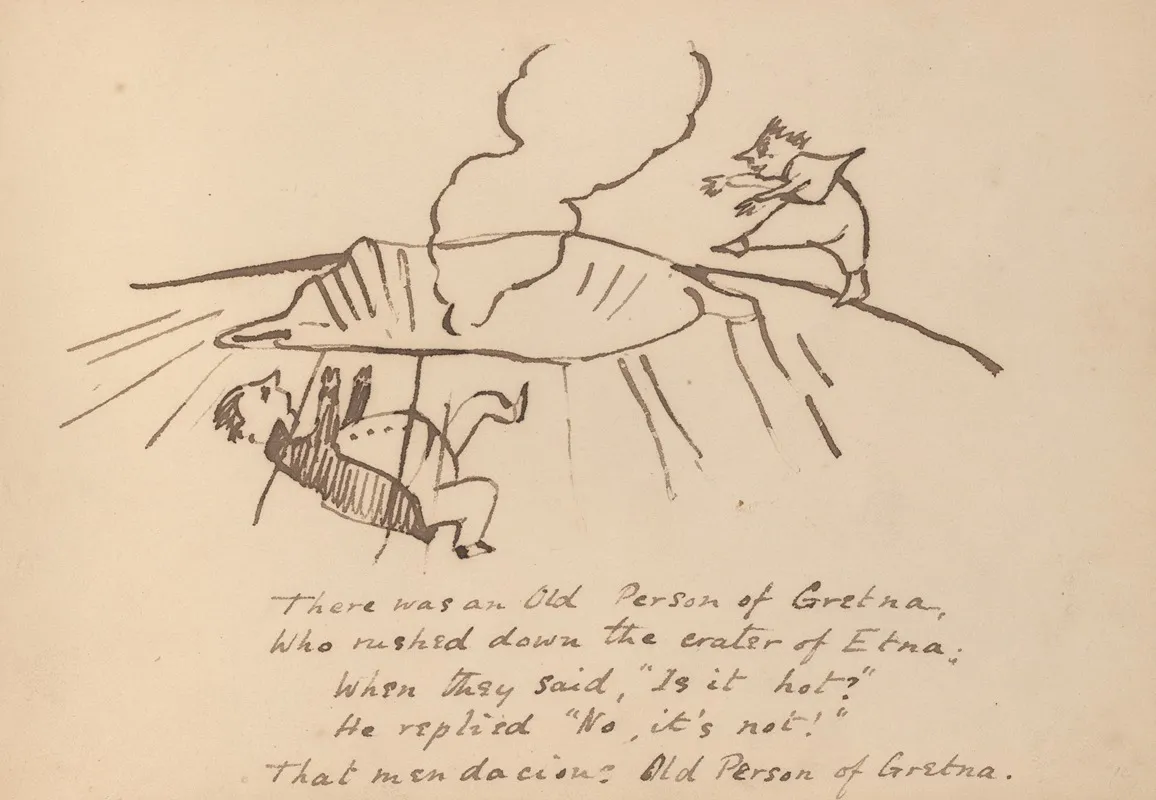 There was an Old Person of Gretna,
Who rushed down the crater of Etna;
When they said, "Is it hot?"
He replied "No, it's not!"
That mendacious Old Person of Gretna.